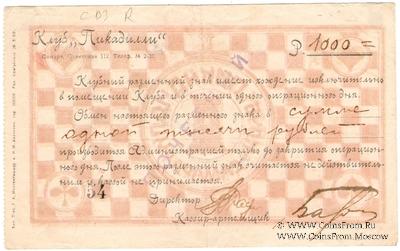 СВЗ R
Клуб „Пикадилли“
Р 1000 =
Самара,
Клубный разменный знак имеет хождение исключительно
в помещении Клуба и в течении одного операционного дня.
Обмен настоящего разменного знака в сумме
одной тысячи рублей
производится Администрацией только до закрытия операционного
дня. После этого разменный знак считается не действительным
и кассой не принимается.
34
Директор
Кассир-артельщик
www.CoinsFrom.Ru
© CoinsFrom.Ru, Moscow